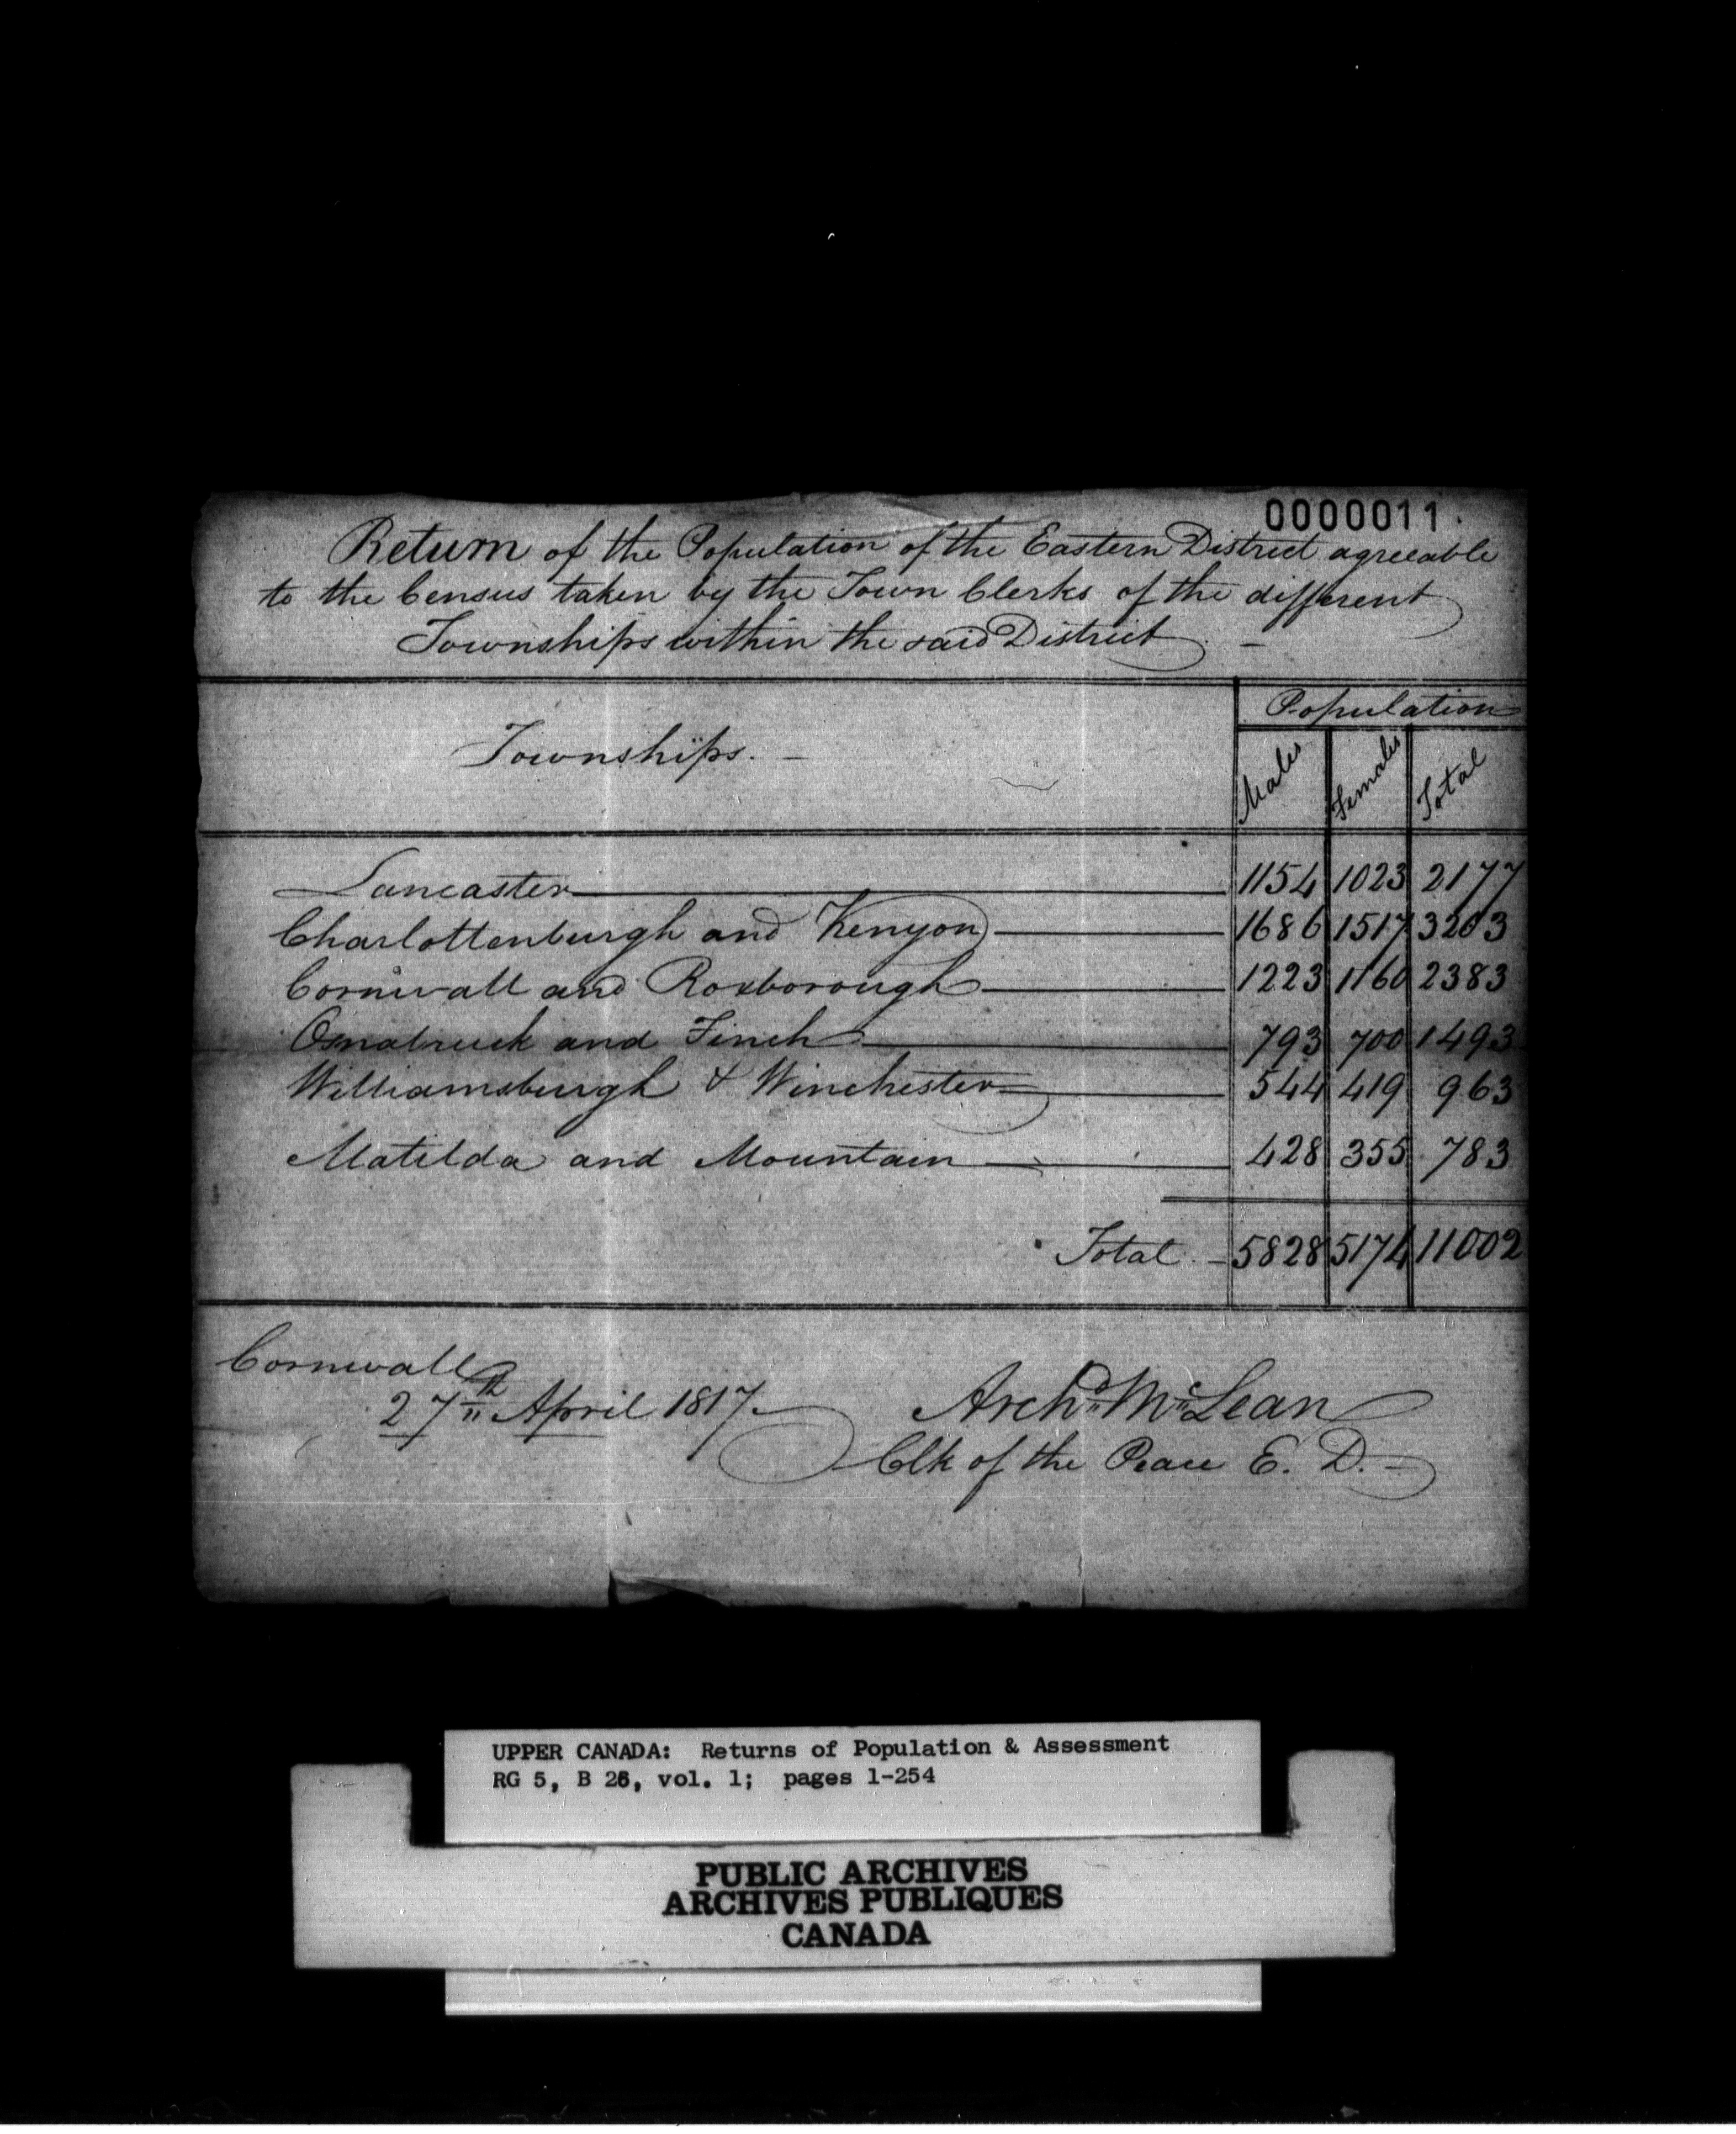 0000011.
Return of the Population of the Eastern District agreeable
to the Census taken by the Town Clerks of the different
Townships within the said District -
Townships. -
Population
Males Females Total
Lancaster 1154 1023 2177
Charlottenburgh and Kenyon 1686 1517 3203
Cornwall and Roxborough 1223 1160 2383
Osnabruck and Finch 793 700 1493
Williamsburgh & Winchester 544 419 963
Matilda and Mountain 428 355 783
Total. - 5828 5174 11002
Cornwall
27th April 1817.
Archd McLean
Clk of the Peace E. D. -
UPPER CANADA: Returns of Population & Assessment
RG 5, B 26, vol. 1; pages 1-254
PUBLIC ARCHIVES
ARCHIVES PUBLIQUES
CANADA